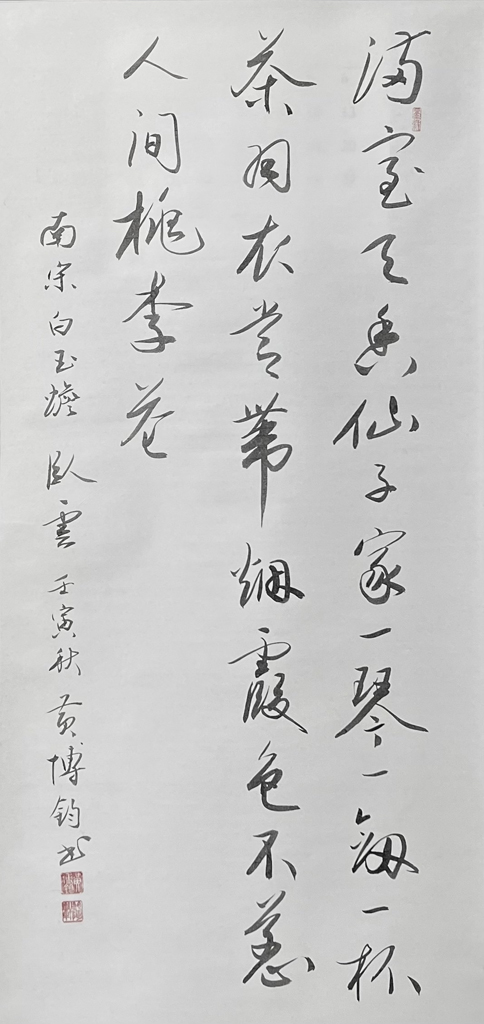 满室天香仙子家一琴一劍一杯
茶羽衣常帶烟霞色不惹
人间桃李花
南宋白玉蟾 臥雲 壬寅秋 黄博鈞书